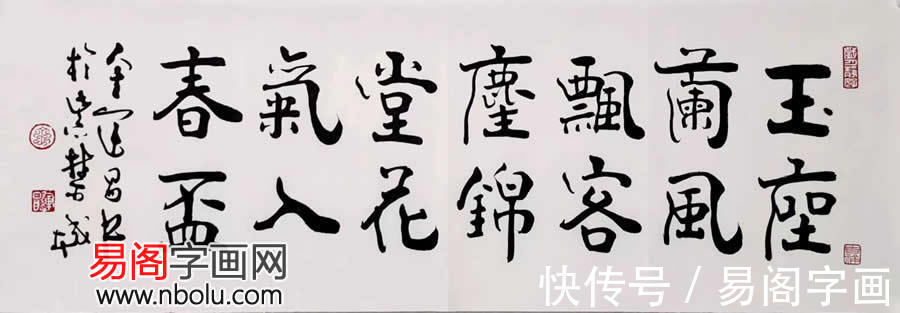 玉座
蘭風
飄客
塵錦
堂花
氣入
春盃
易阁字画网
www.nbolu.com
快传号 / 易阁字画